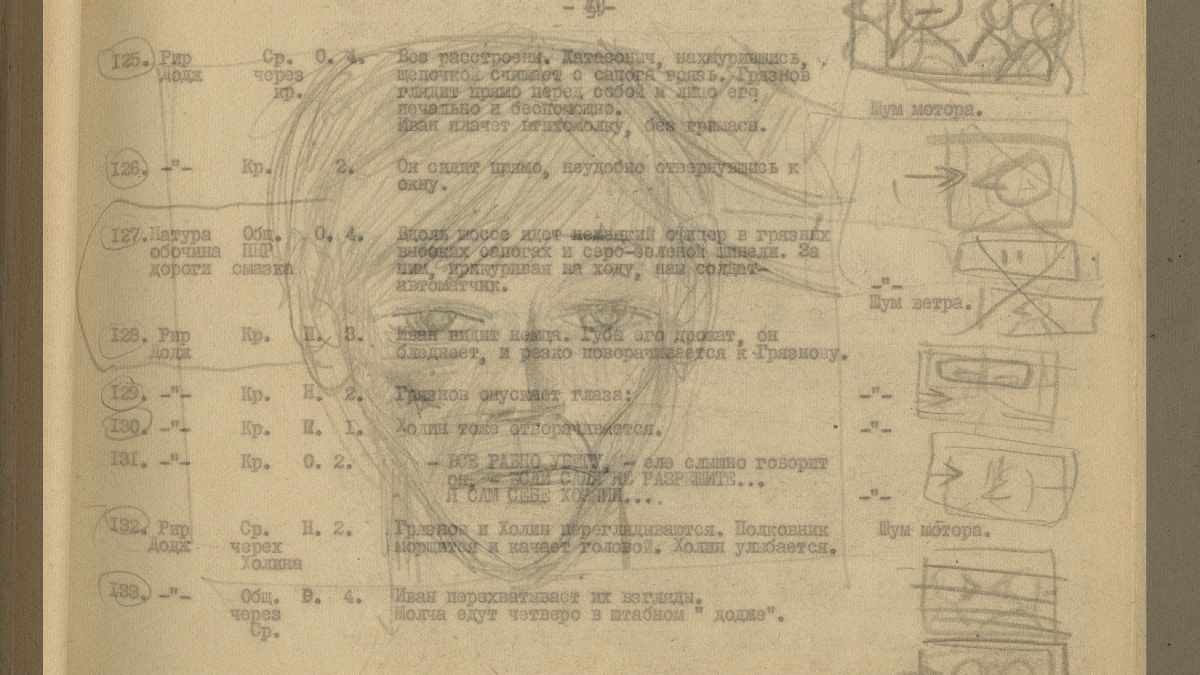 125. Рир Ср. О. 4. Все расстроены. Катасоныч, нахмурившись,
Додж через щепочкой счищает с сапога грязь. Грязнов
кр. глядит прямо перед собой и лицо его
печально и беспомощно.
Шум мотора.
Иван плачет втихомолку, без гримасы.
126. -"- Кр. 2. Он сидит прямо, неудобно отвернувшись к
окну.
127. Натура Общ. О. 4. Вдоль шоссе идет немецкий офицер в грязных
обочина ПНР высоких сапогах и серо-зеленой шинели. За
дороги смазка ним, прикуривая на ходу, наш солдат-
автоматчик.
-"-
Шум ветра.
128. Рир Кр. Н. 3. Иван видит немца. Губы его дрожат, он
Додж бледнеет, и резко поворачивается к Грязнову.
129. -"- Кр. Н. 2. Грязнов опускает глаза: -"-
130. -"- Кр. Н. 1. Холин тоже отворачивается. -"-
131. -"- Кр. О. 2. - ВСЕ РАВНО УБЕГУ, - еле слышно говорит
он, - ЕСЛИ САМИ НЕ РАЗРЕШИТЕ...
Я САМ СЕБЕ ХОЗЯИН.... -"-
132. Рир Ср. Н. 2. Грязнов и Холин переглядываются. Полковник Шум мотора.
Додж черех морщится и качает головой. Холин улыбается.
Холина
133. -"- Общ. О. 4. Иван перехватывает их взгляды.
через Молча едут четверо в штабном " додже".
Ср.